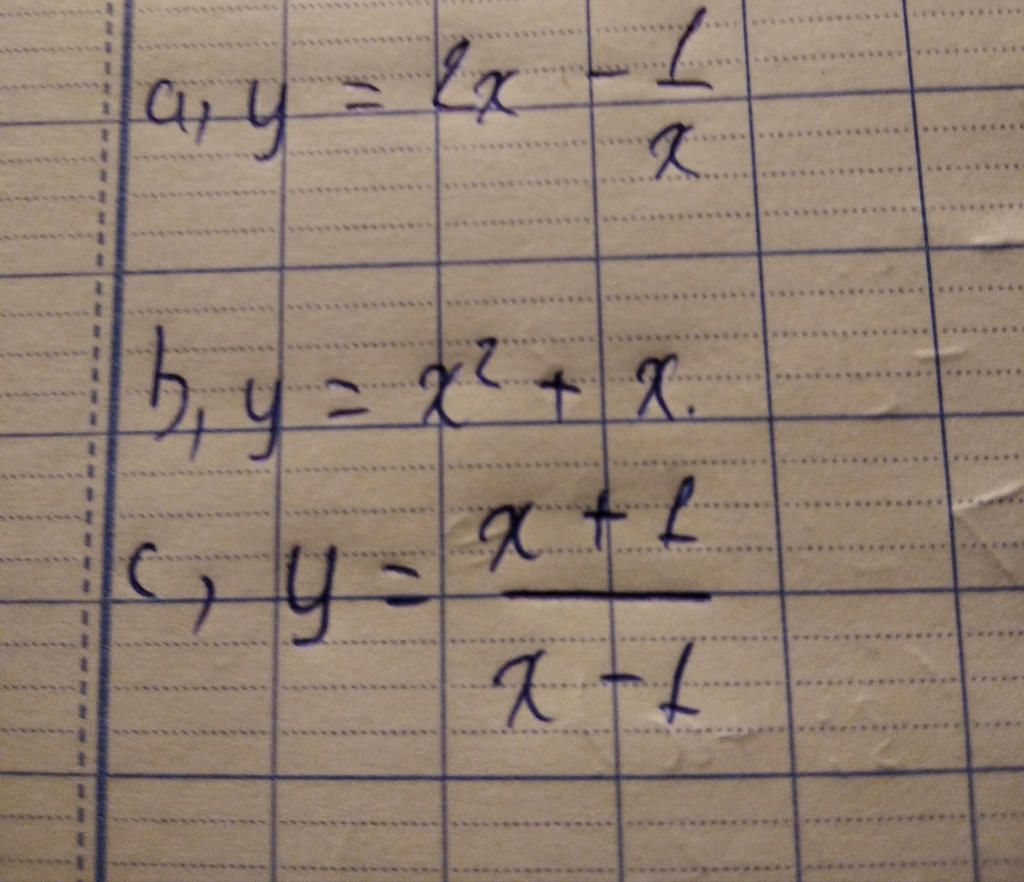 a, y = 2x - 1/x
b, y = x² + x.
c, y = (x + 1)/(x - 1)